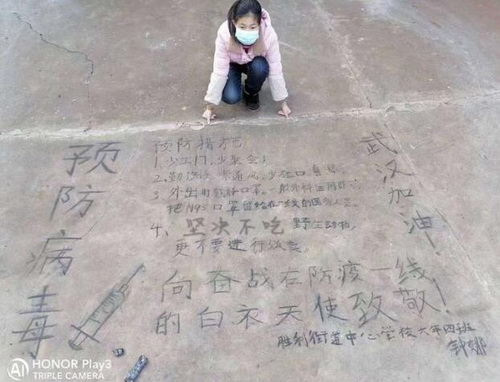 预防病毒
武汉加油！
预防措施
1、少出门,少聚会;
2、勤洗手,常通风,少
3、外出用戴好口罩,一般外科
把N95口罩留给在一线的医
4、坚决不吃野生动物,
更不要进行
向奋战在防疫一线
的白衣天使致敬！
胜利街道中心学校六年四班
HONOR Play3
TRIPLE CAMERA
AI